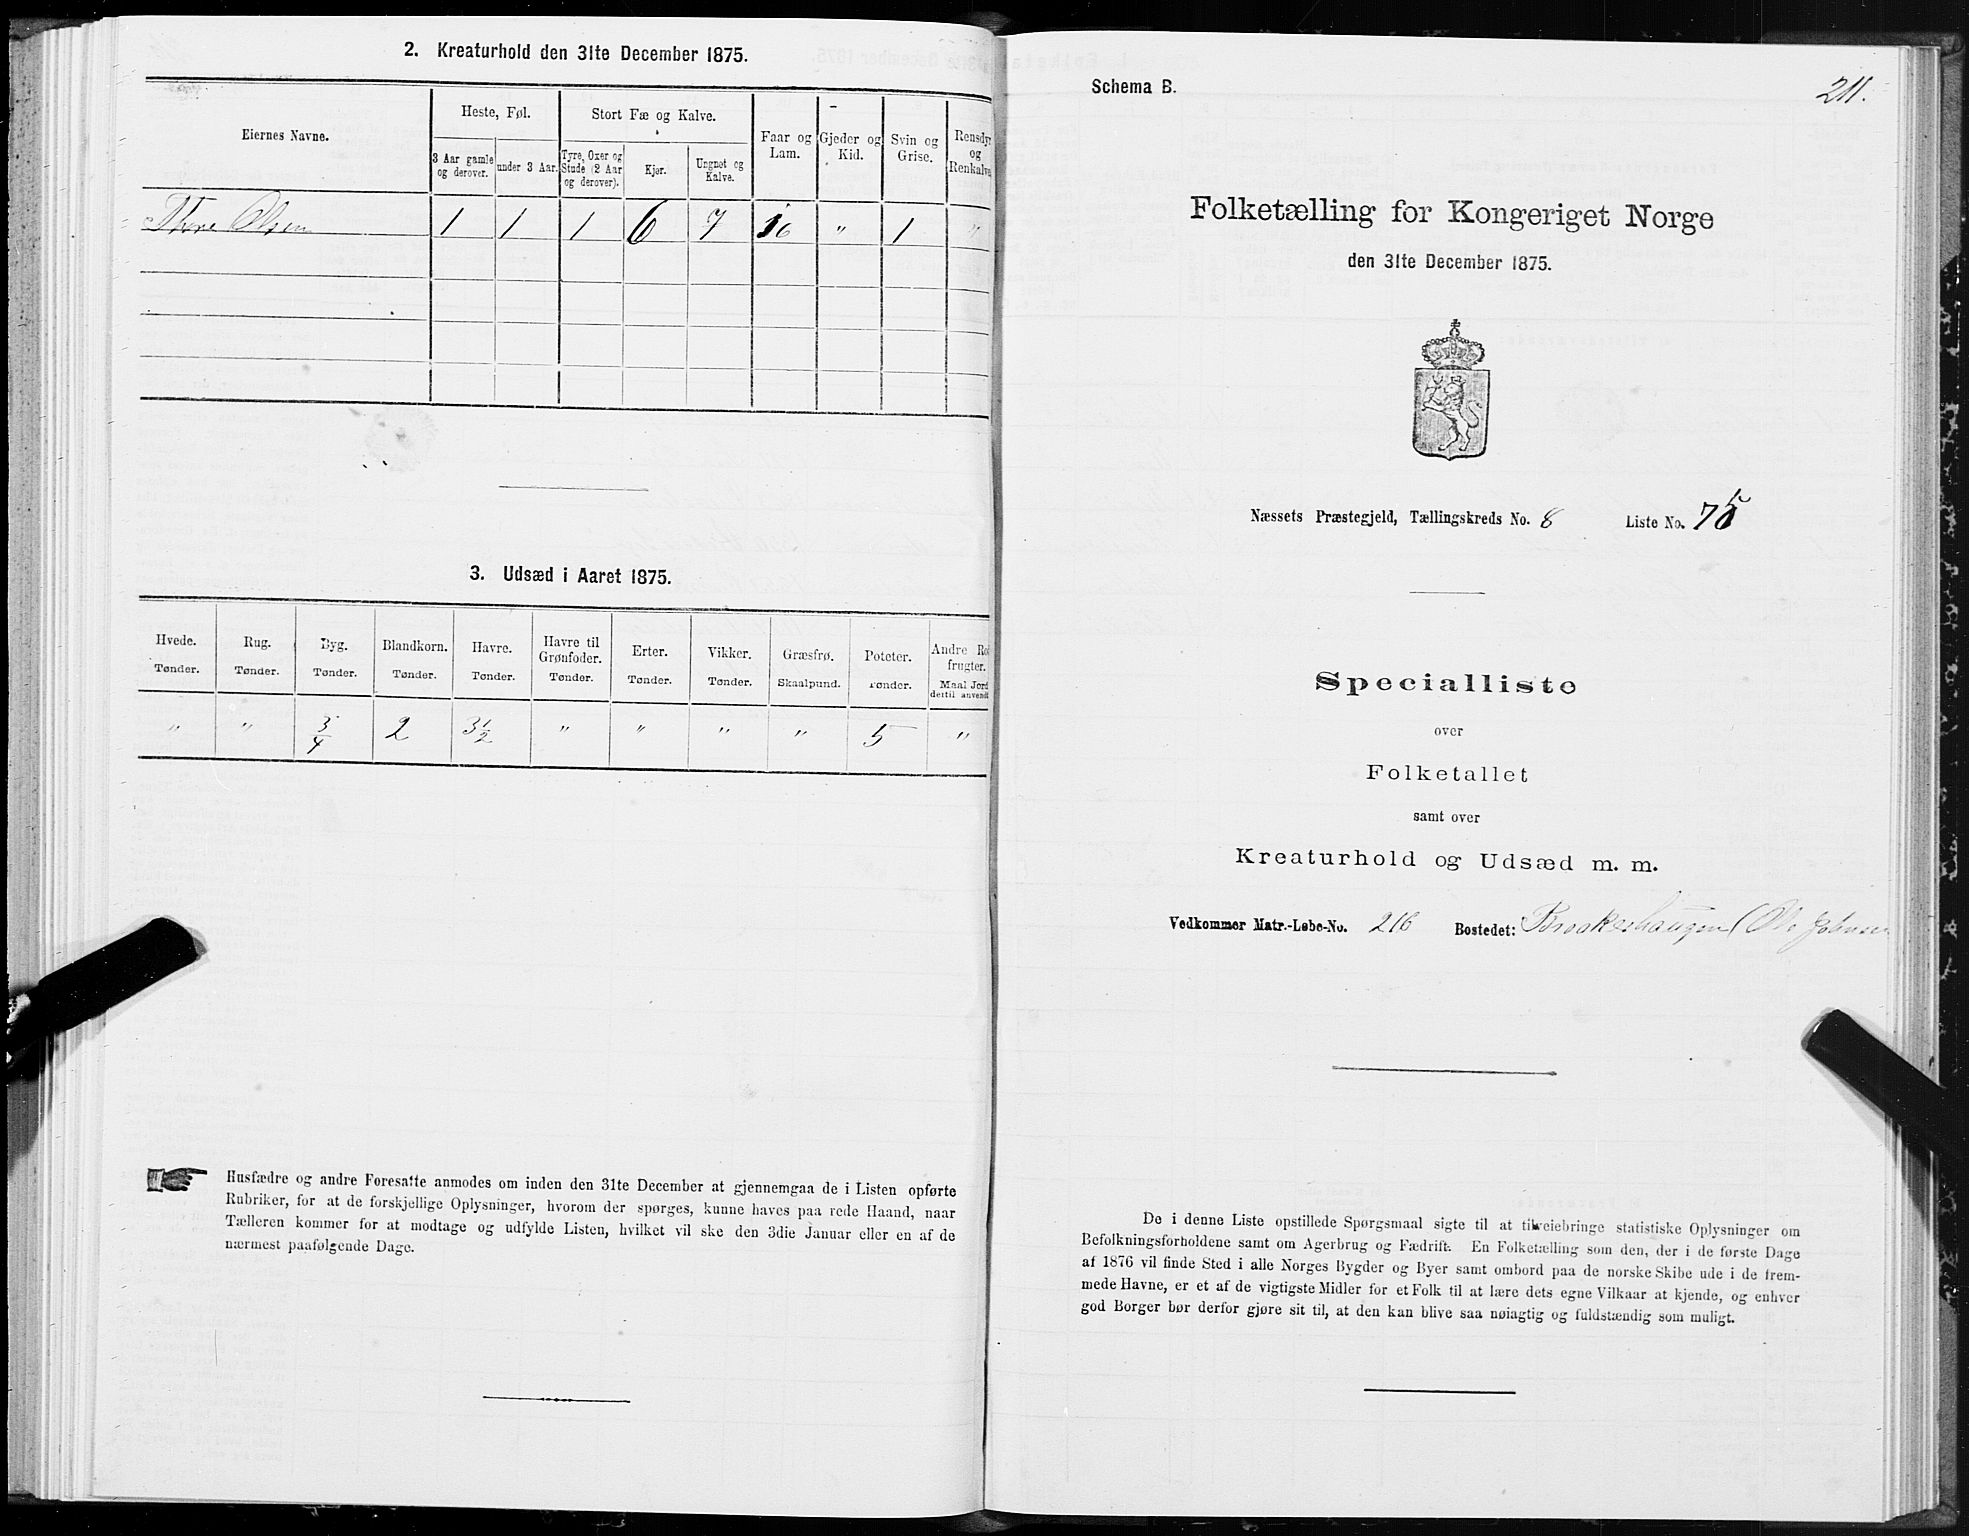 2. Kreaturhold den 31te December 1875.
Eiernes Navne.
Heste, Føl.
Stort Fæ og Kalve.
Faar og Lam.
Gjeder og Kid.
Svin og Grise.
Rensdyr og Renkalve
3 Aar gamle og derover.
under 3 Aar.
Tyre, Oxer og Stude (2 Aar og derover).
Kjør.
Ungnøt og Kalve.
Thore Olsen 1 1 1 6 7 16 " 1 "
3. Udsæd i Aaret 1875.
Hvede. Rug. Byg. Blandkorn. Havre. Havre til Grønfoder. Erter. Vikker. Græsfrø. Poteter. Andre Ro frugter.
Tønder. Tønder. Tønder. Tønder. Tønder. Tønder. Tønder. Tønder. Skaalpund. Tønder. Maal Jord dertil anvendt
" " 3/4 2 3 1/2 " " " " 5 "
Husfædre og andre Foresatte anmodes om inden den 31te December at gjennemgaa de i Listen opførte
Rubriker, for at de forskjellige Oplysninger, hvorom der spørges, kunne haves paa rede Haand, naar
Tælleren kommer for at modtage og udfylde Listen, hvilket vil ske den 3die Januar eller en af de
nærmest paafølgende Dage.
Schema B.
211.
Folketælling for Kongeriget Norge
den 31te December 1875.
Næssets Præstegjeld, Tællingskreds No. 8 Liste No. 75
Specialliste
over
Folketallet
samt over
Kreaturhold og Udsæd m. m.
Vedkommer Matr.-Løbe-No. 216 Bostedet: Brakeshaugen (Ole Johnsen
De i denne Liste opstillede Spørgsmaal sigte til at tilveiebringe statistiske Oplysninger om
Befolkningsforholdene samt om Agerbrug og Fædrift. En Folketælling som den, der i de første Dage
af 1876 vil finde Sted i alle Norges Bygder og Byer samt ombord paa de norske Skibe ude i de frem-
mede Havne, er et af de vigtigste Midler for et Folk til at lære dets egne Vilkaar at kjende, og enhver
god Borger bør derfor gjøre sit til, at den kan blive saa nøiagtig og fuldstændig som muligt.